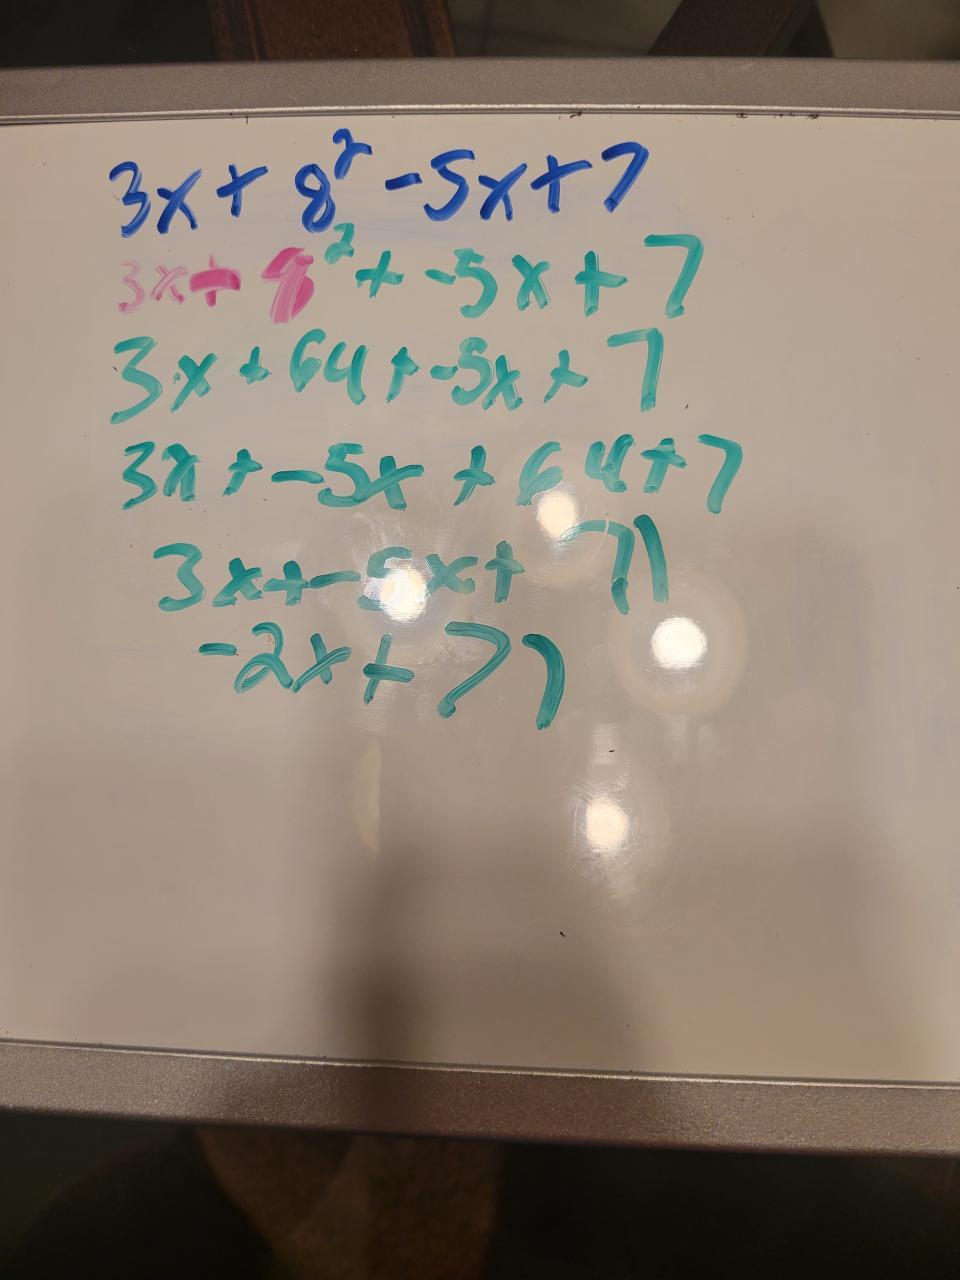 3x + 8² - 5x + 7
3x + 8² + -5x + 7
3x + 64 + -5x + 7
3x + -5x + 64 + 7
3x + -5x + 71
-2x + 71